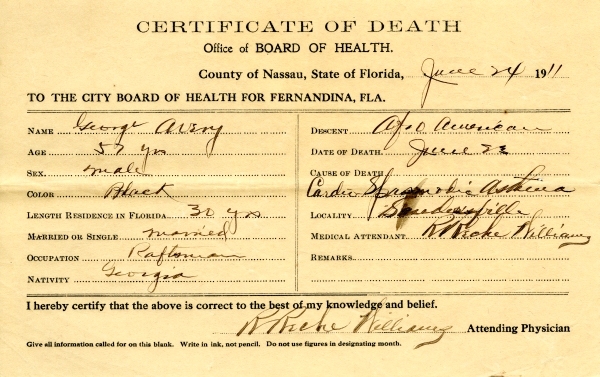 CERTIFICATE OF DEATH
Office of BOARD OF HEALTH.
County of Nassau, State of Florida, June 24 1911
TO THE CITY BOARD OF HEALTH FOR FERNANDINA, FLA.
NAME George Avery
AGE 57 yrs
SEX. male
COLOR Black
LENGTH RESIDENCE IN FLORIDA 30 yrs
MARRIED OR SINGLE married
OCCUPATION Raftsman
NATIVITY Georgia
DESCENT. Afro American
DATE OF DEATH. June 22
CAUSE OF DEATH
Asthma
LOCALITY
MEDICAL ATTENDANT Williams
REMARKS
I hereby certify that the above is correct to the best of my knowledge and belief.
Williams Attending Physician
Give all information called for on this blank. Write in ink, not pencil. Do not use figures in designating month.